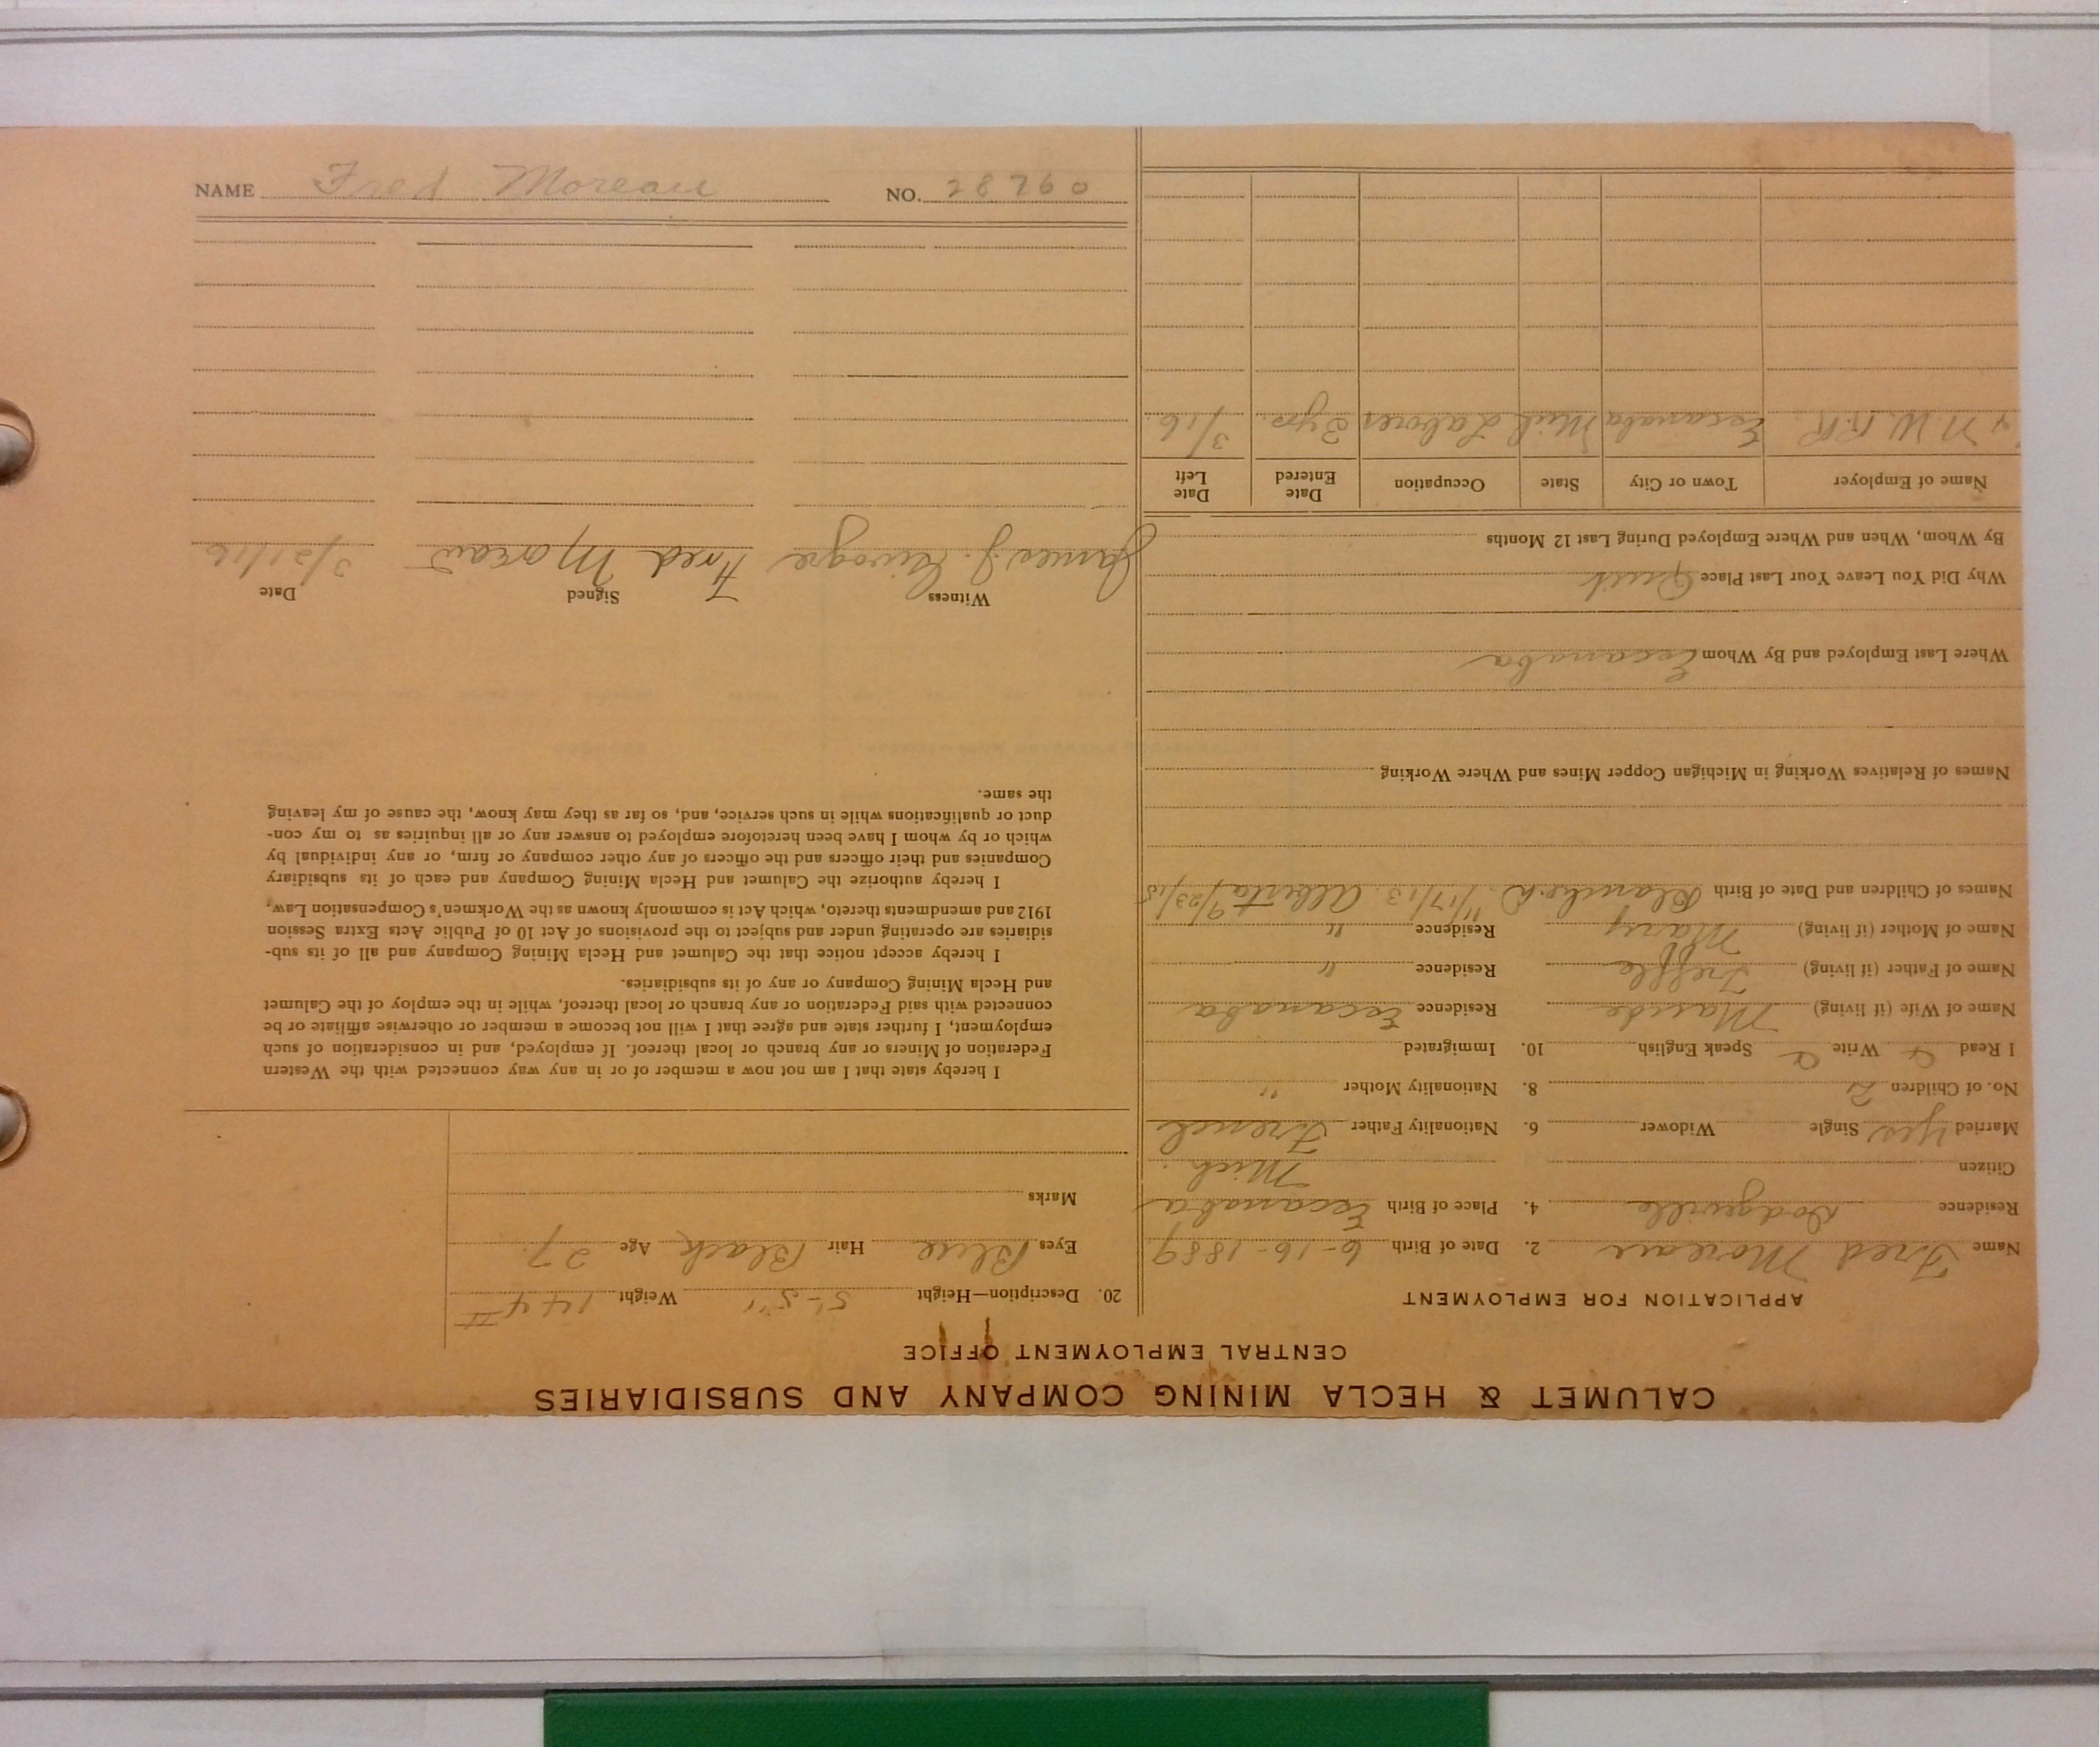 CALUMET & HECLA MINING COMPANY AND SUBSIDIARIES
CENTRAL EMPLOYMENT OFFICE
APPLICATION FOR EMPLOYMENT
Name Fred Moreau 2. Date of Birth 6-16-1889
Residence Dodgeville 4. Place of Birth Escanaba
Citizen Mich.
Married Yes Single Widower 6. Nationality Father French
No. of Children 2 8. Nationality Mother "
I Read Write Speak English 10. Immigrated
Name of Wife (if living) Maude Residence Escanaba
Name of Father (if living) Treffle Residence "
Name of Mother (if living) Mary Residence "
Names of Children and Date of Birth 11/17/13. Alberta 9/23/15
Names of Relatives Working in Michigan Copper Mines and Where Working
Where Last Employed and By Whom Escanaba
Why Did You Leave Your Last Place Quit
By Whom, When and Where Employed During Last 12 Months
Name of Employer Town or City State Occupation Date Entered Date Left
& N.W.R.R. Escanaba Mich Laborer 3 yrs. 3/16.
20. Description—Height 5'-5" Weight 144 #
Eyes Blue Hair Black Age 27
Marks
I hereby state that I am not now a member of or in any way connected with the Western
Federation of Miners or any branch or local thereof. If employed, and in consideration of such
employment, I further state and agree that I will not become a member or otherwise affiliate or be
connected with said Federation or any branch or local thereof, while in the employ of the Calumet
and Hecla Mining Company or any of its subsidiaries.
I hereby accept notice that the Calumet and Hecla Mining Company and all of its sub-
sidiaries are operating under and subject to the provisions of Act 10 of Public Acts Extra Session
1912 and amendments thereto, which Act is commonly known as the Workmen's Compensation Law.
I hereby authorize the Calumet and Hecla Mining Company and each of its subsidiary
Companies and their officers and the officers of any other company or firm, or any individual by
which or by whom I have been heretofore employed to answer any or all inquiries as to my con-
duct or qualifications while in such service, and, so far as they may know, the cause of my leaving
the same.
Witness Signed Date
James J. Fred Moreau 3/21/16
NAME Fred Moreau NO. 28760